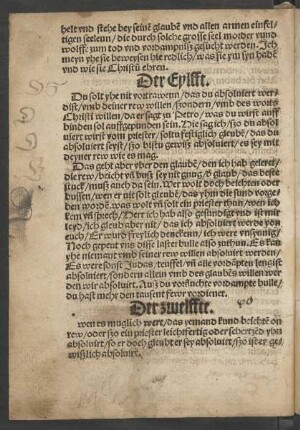 helt vnd stehe bey seine glaubē vnd allen armen einfel-
tigen seelenn / die durch solche grosse seel morder vnd
wolff: zum tod vnd vordampniß gesücht werden. Ich
meyn yhe sie beweysen hie redlich / was sie ym syn habē
vnd wie sie Christū ehren.
Der Eylfft.
Du solt yhe nit vortrawenn / das du absoluiert wer-
dist / vmb deiner rew willen / ßondern / vmb des worts
Christi willen / da er sagt zu Petro / was du wirst auff
binden sol auffgepunden sein. Die sagich / ßo du absol
uiert wirst vom priester / soltu festiglich gleubē / das du
absoluiert seyst / ßo bistu gewiß absoluiert / es sey mit
deyner rew wie es mag.
Das geht aber vber den glaubē / den ich hab geleret /
die rew / beicht vñ buß sey nit gnug / d' glaub / das beste
stuck / muß auch da sein. Wer wolt doch beichten oder
bussen / wen er nit solt gleubē / das yhm die sund vorge
ben wordē. was wolt yñ solt ein priester thun / wen ich
kem vñ sprech / Herr ich hab also gesundigt vnd ist mir
leyd / ich gleub aber nit / das ich absoluirt werde von
euch / Er wurd freylich dencken / ich were vnsynnig /
Noch gepeut vns disse laster bulle also zuthun. Es kan
yhe niemant vmb seiner rew willen absoluirt werden /
Es were sonst Judas / teuffel / vñ alle vordāpten lengist
absoluiert / sondern allein vmb des glaubēs willen wer
den wir absoluirt. Auß du vorfluchte vordampte bulle /
du hast mehr den tausent fewr vordienet.
Der zwelffte.
wen es muglich wert / das yemand kund beichtē on
rew / oder ßo ein priester leichtfertig oder schertzēd yhn
absoluirt / ßo er doch gleubt er sey absoluirt / ßo ist er ge-
wißlich absoluirt.